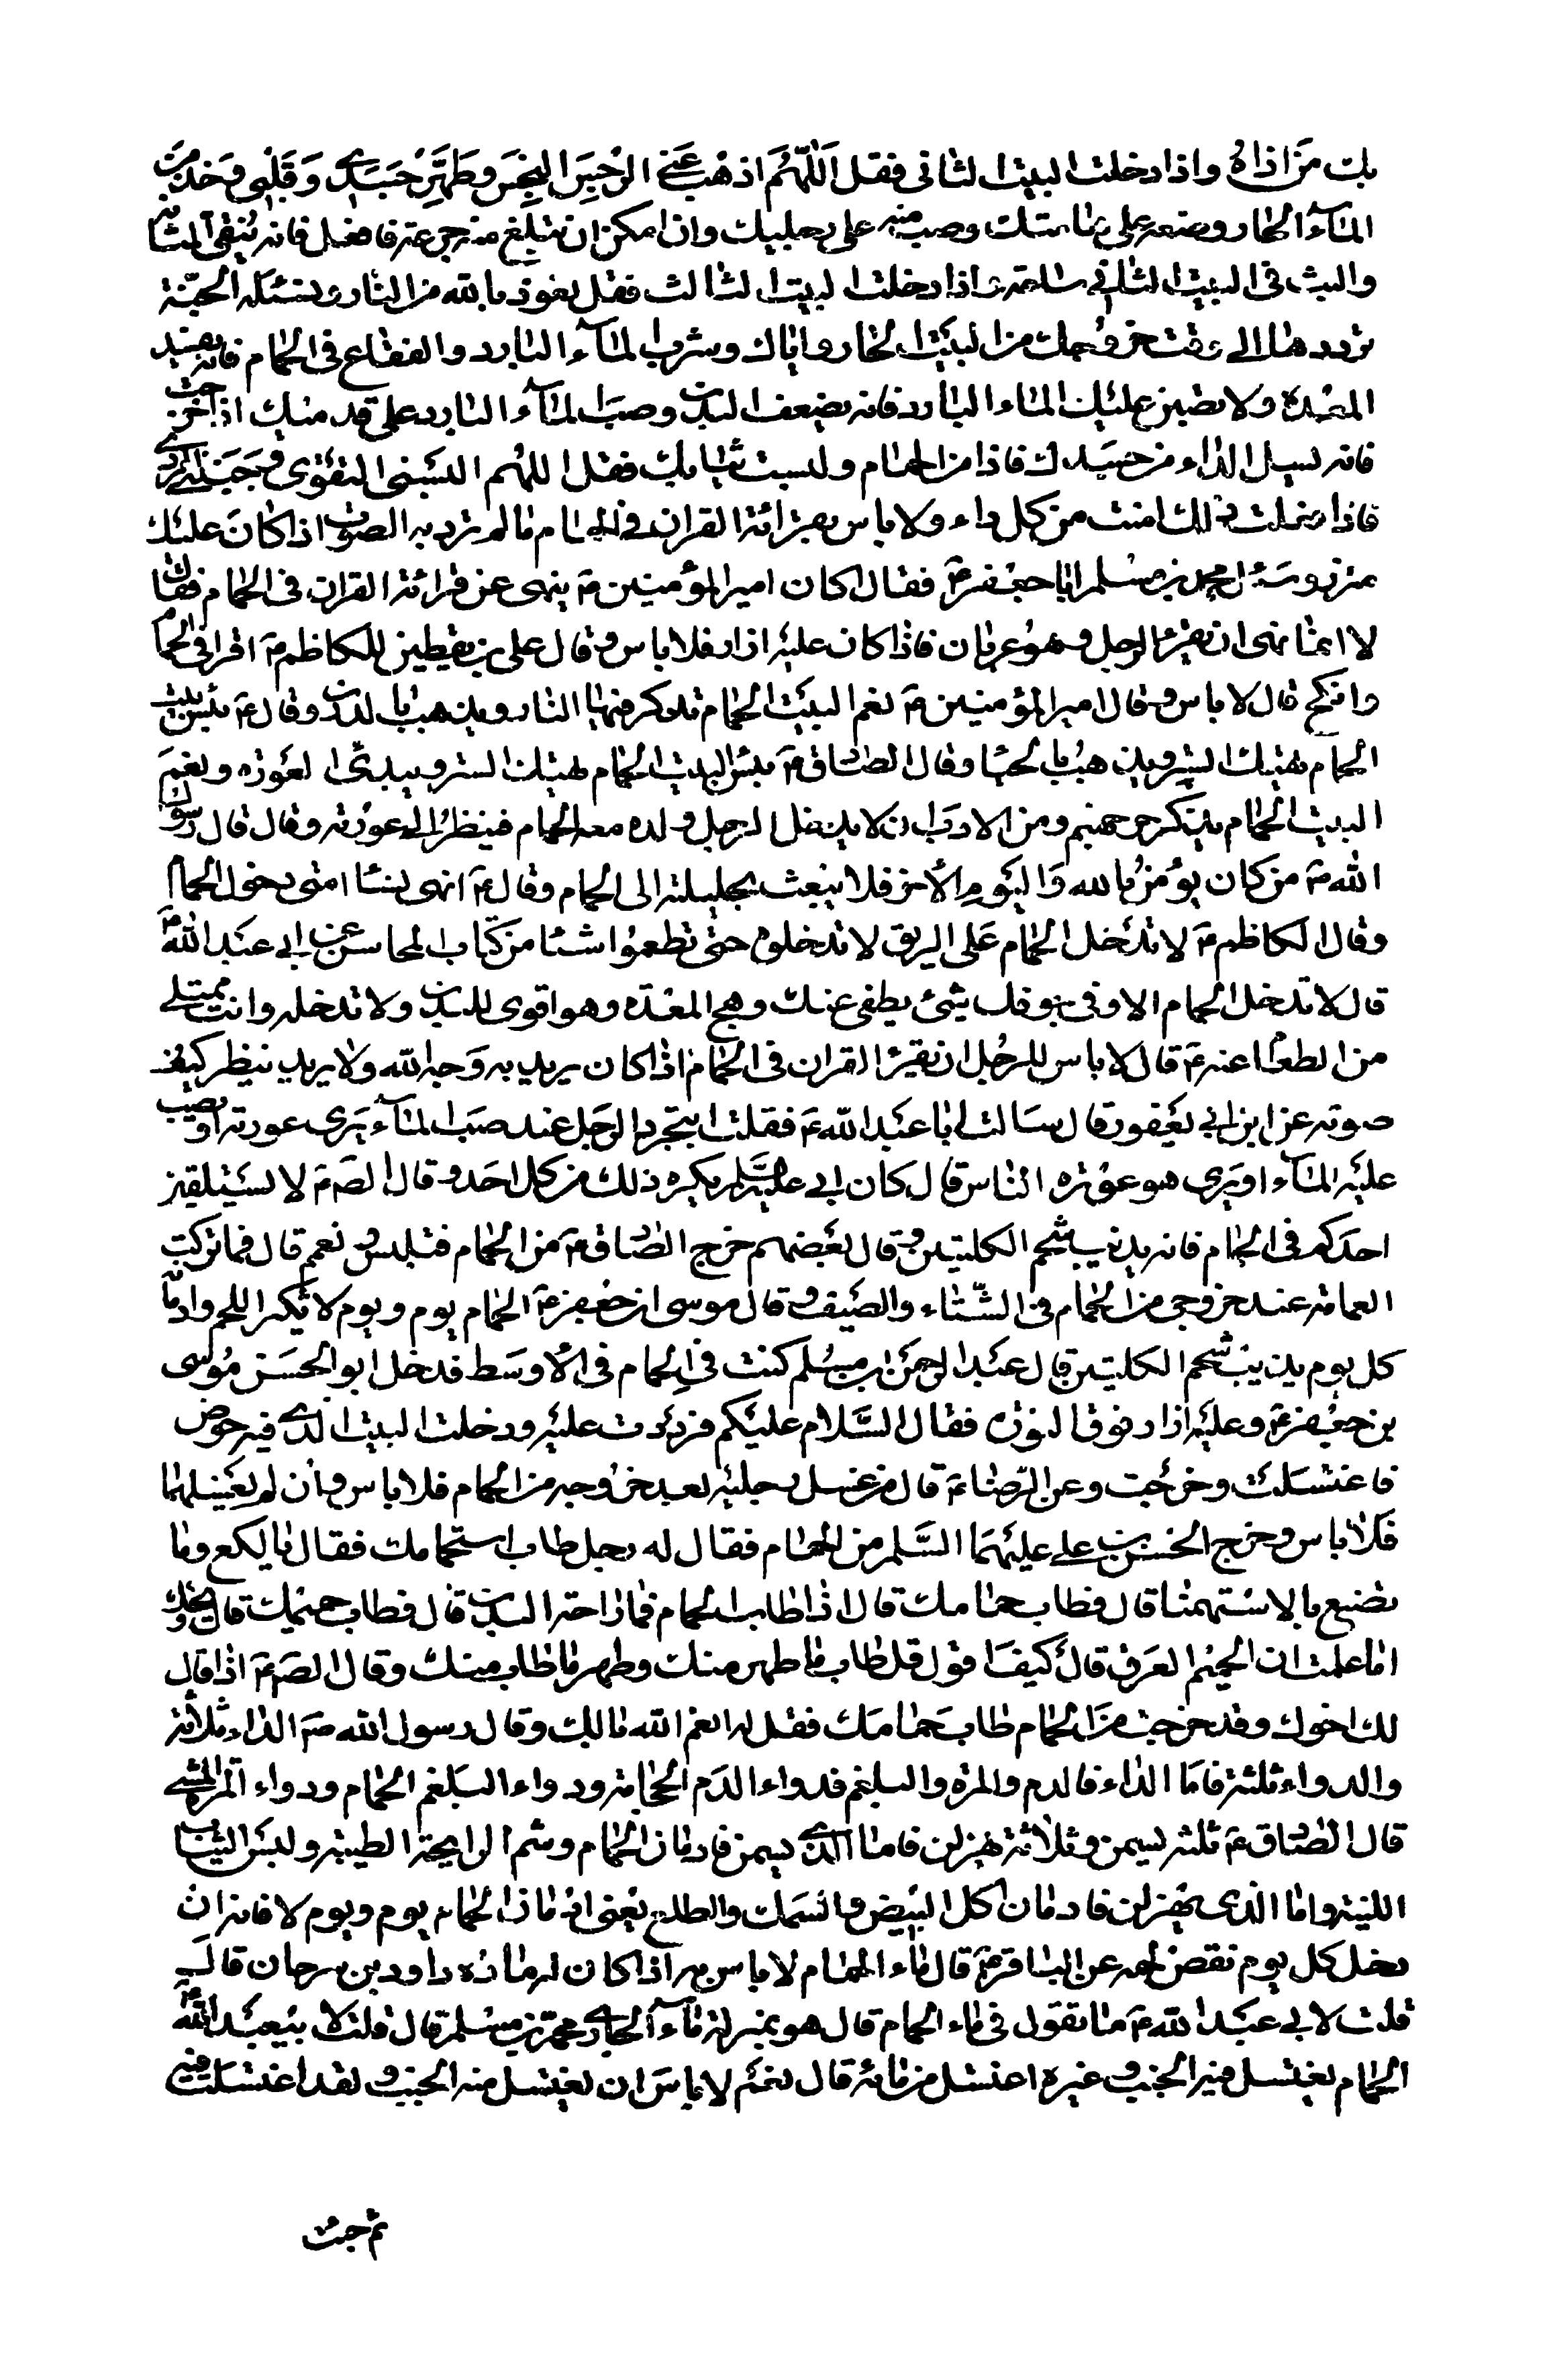 بك من اذاه واذا دخلت البيت الثانى فقل اَللّهُمَّ اذهب عَنّى الرِّجسَ النِّجسَ وَطَهِّر جَسَدى وَقَلْبى وخذ من
المآء الحار وضعه على هامتك وصب منه على رجليك وان امكن ان تبلغ منه جرعة فافعل فانه يُنقى المثانه
والبث فى البيت الثانى ساعة و اذا دخلت البيت الثالث فقل نعوذ بالله من النار و نسئله الجنّة
ترددها الى وقت خروجك من البيت الحار واياك وشرب المآء البارد والفقاع فى الحمام فانه يفسد
المعدة ولا تصبن عليك الماء البارد فانه يضعف البدن وصب المآء البارد على قدميك اذا خرجت
فانه يسل الداء من جسدك فاذا من الحمام ولبست ثيابك فقل اللهم البسنى التقوى وجنبنى الردى
فاذا فعلت ذلك امنت من كل داء ولا باس بقرائة القران فى الحمام مالم ترد به الصوت اذا كان عليك
مئزر وسئل محمد بن مسلم ابا جعفر ع فقال اكان امير المؤمنين ع ينهى عن قرائة القران فى الحمام فقال
لا انما نهى ان يقرء الرجل وهو عريان فاذا كان عليه ازار فلا باس وقال على بن يقطين للكاظم ع اقرا فى الحمام
وانكح قال لا باس وقال امير المؤمنين ع نعم البيت الحمام تذكر فيها النار ويذهب بالدرن وقال ع بئس البيت
الحمام يهتك الستر ويذهب بالحيا وقال الصادق ع بئس البيت الحمام يهتك الستر ويبدى العورة ونعم
البيت الحمام يذكر حر جهنم ومن الادب ان لا يدخل الرجل ولده معه الحمام فينظر الى عورته وقال قال رسول
الله ص من كان يؤمن بالله وَاليوم الأخر فلا يبعث بحليلته الى الحمام وقال ع انهى نساء امتى دخول الحمام
وقال الكاظم ع لا تدخل الحمام على الريق لا تدخلوه حتى تطعموا شيئا من كتاب المحاسن عن ابى عبد الله ع
قال لا تدخل الحمام الا وفى جوفك شئ يطفى عنك وهج المعدة وهو اقوى للبدن ولا تدخله وانت ممتلئ
من الطعام عنه ع قال لا باس للرجل ان يقرء القران فى الحمام اذا كان يريد به وجه الله ولا يريد ينظر كيف
صوته عن ابن ابى يعفور قال سالت ابا عبد الله ع فقلت ايتجرد الرجل عند صب المآء يرى عورته او يصب
عليه المآء او يرى هو عورة الناس قال كان ابى عليه السلم يكره ذلك من كل احد وقال الص ع لا يستلقين
احدكم فى الحمام فانه يذيب شحم الكليتين وقال بعضهم خرج الصادق ع من الحمام فتلبس وتعمم قال فما تركت
العمامة عند خروجى من الحمام فى الشتاء والصيف وقال موسى ابن جعفر ع الحمام يوم ويوم لا يكثر اللحم وادمانه
كل يوم يذيب شحم الكليتين قال عبد الرحمن ابن مسلم كنت فى الحمام فى الاوسط فدخل ابو الحسن موسى
بن جعفر ع وعليه ازار فوق النورة فقال السلام عليكم فرددت عليه ودخلت البيت الذى فيه حوض
فاغتسلت وخرجت وعن الرضا ع قال من غسل رجليه بعد خروجه من الحمام فلا باس وان لم يغسلهما
فلا باس وخرج الحسن بن على عليهما السلم من الحمام فقال له رجل طاب استحمامك فقال يا لكع وما
تصنع بالاست ههنا قال فطاب حمامك قال اذا طاب الحمام فما راحة البدن قال فطاب حميمك قال ويحك
اما علمت ان الحميم العرق قال كيف اقول قل طاب ما طهر منك وطهر ما طاب منك وقال الص ع اذا قال
لك اخوك وقد خرجت من الحمام طاب حمامك فقل له انعم الله بالك وقال رسول الله ص الداء ثلاثة
والدواء ثلثة فاما الداء فالدم والمرة والبلغم فدواء الدم الحجامة ودواء البلغم الحمام ودواء المرة المشى
قال الصادق ع ثلثة يسمن وثلاثة يهزلن فاما الذى يسمن فادمان الحمام وشم الرايحة الطيبة ولبس الثياب
اللينة واما الذى يهزلن فادمان اكل البيض والسمك والطلع يعنى ادمان الحمام يوم ويوم لا فانه ان
دخل كل يوم نقص لحمه عن الباقر ع قال ماء الحمام لا باس به اذا كان له مادة داود بن سرحان قال
قلت لابى عبد الله ع ما تقول فى ماء الحمام قال هو بمنزلة مآء الجارى محمد بن مسلم قال قلت لابى عبد الله ع
الحمام يغتسل فيه الجنب وغيره اغتسل من مائه قال نعم لا باس ان يغتسل منه الجنب ولقد اغتسلت فيه
ثم جئت